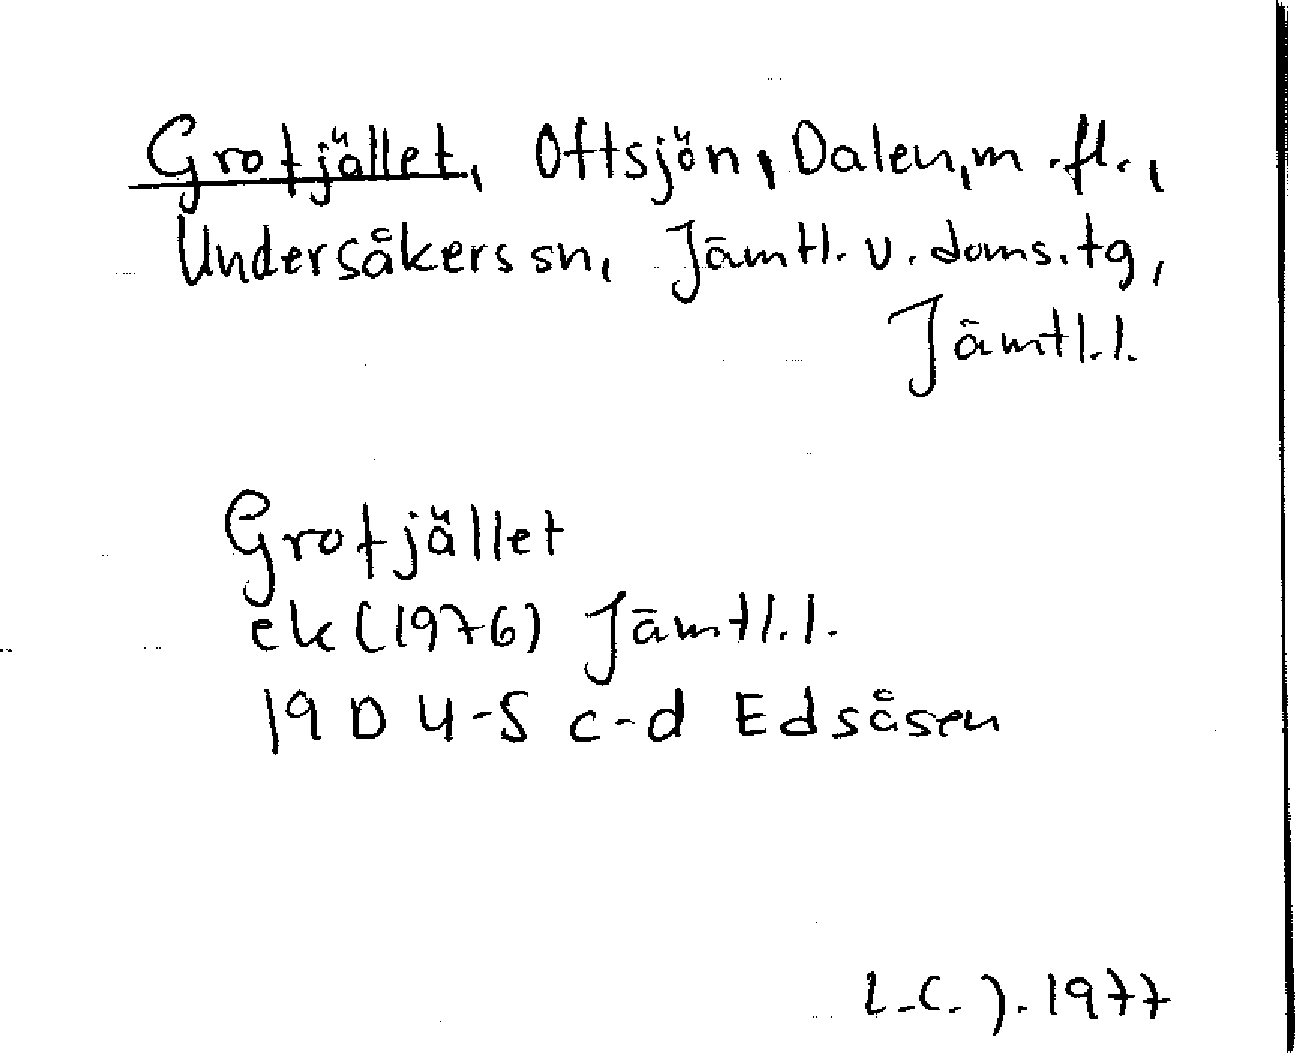 Grofjället, Ottsjön, Dalen, m.fl.,
Undersåkers sn, Jämtl. v. doms. tg,
Jämtl. l.
Grofjället
ek (1976) Jämtl. l.
19 D 4-5 c-d Edsåsen
L.C.J. 1977